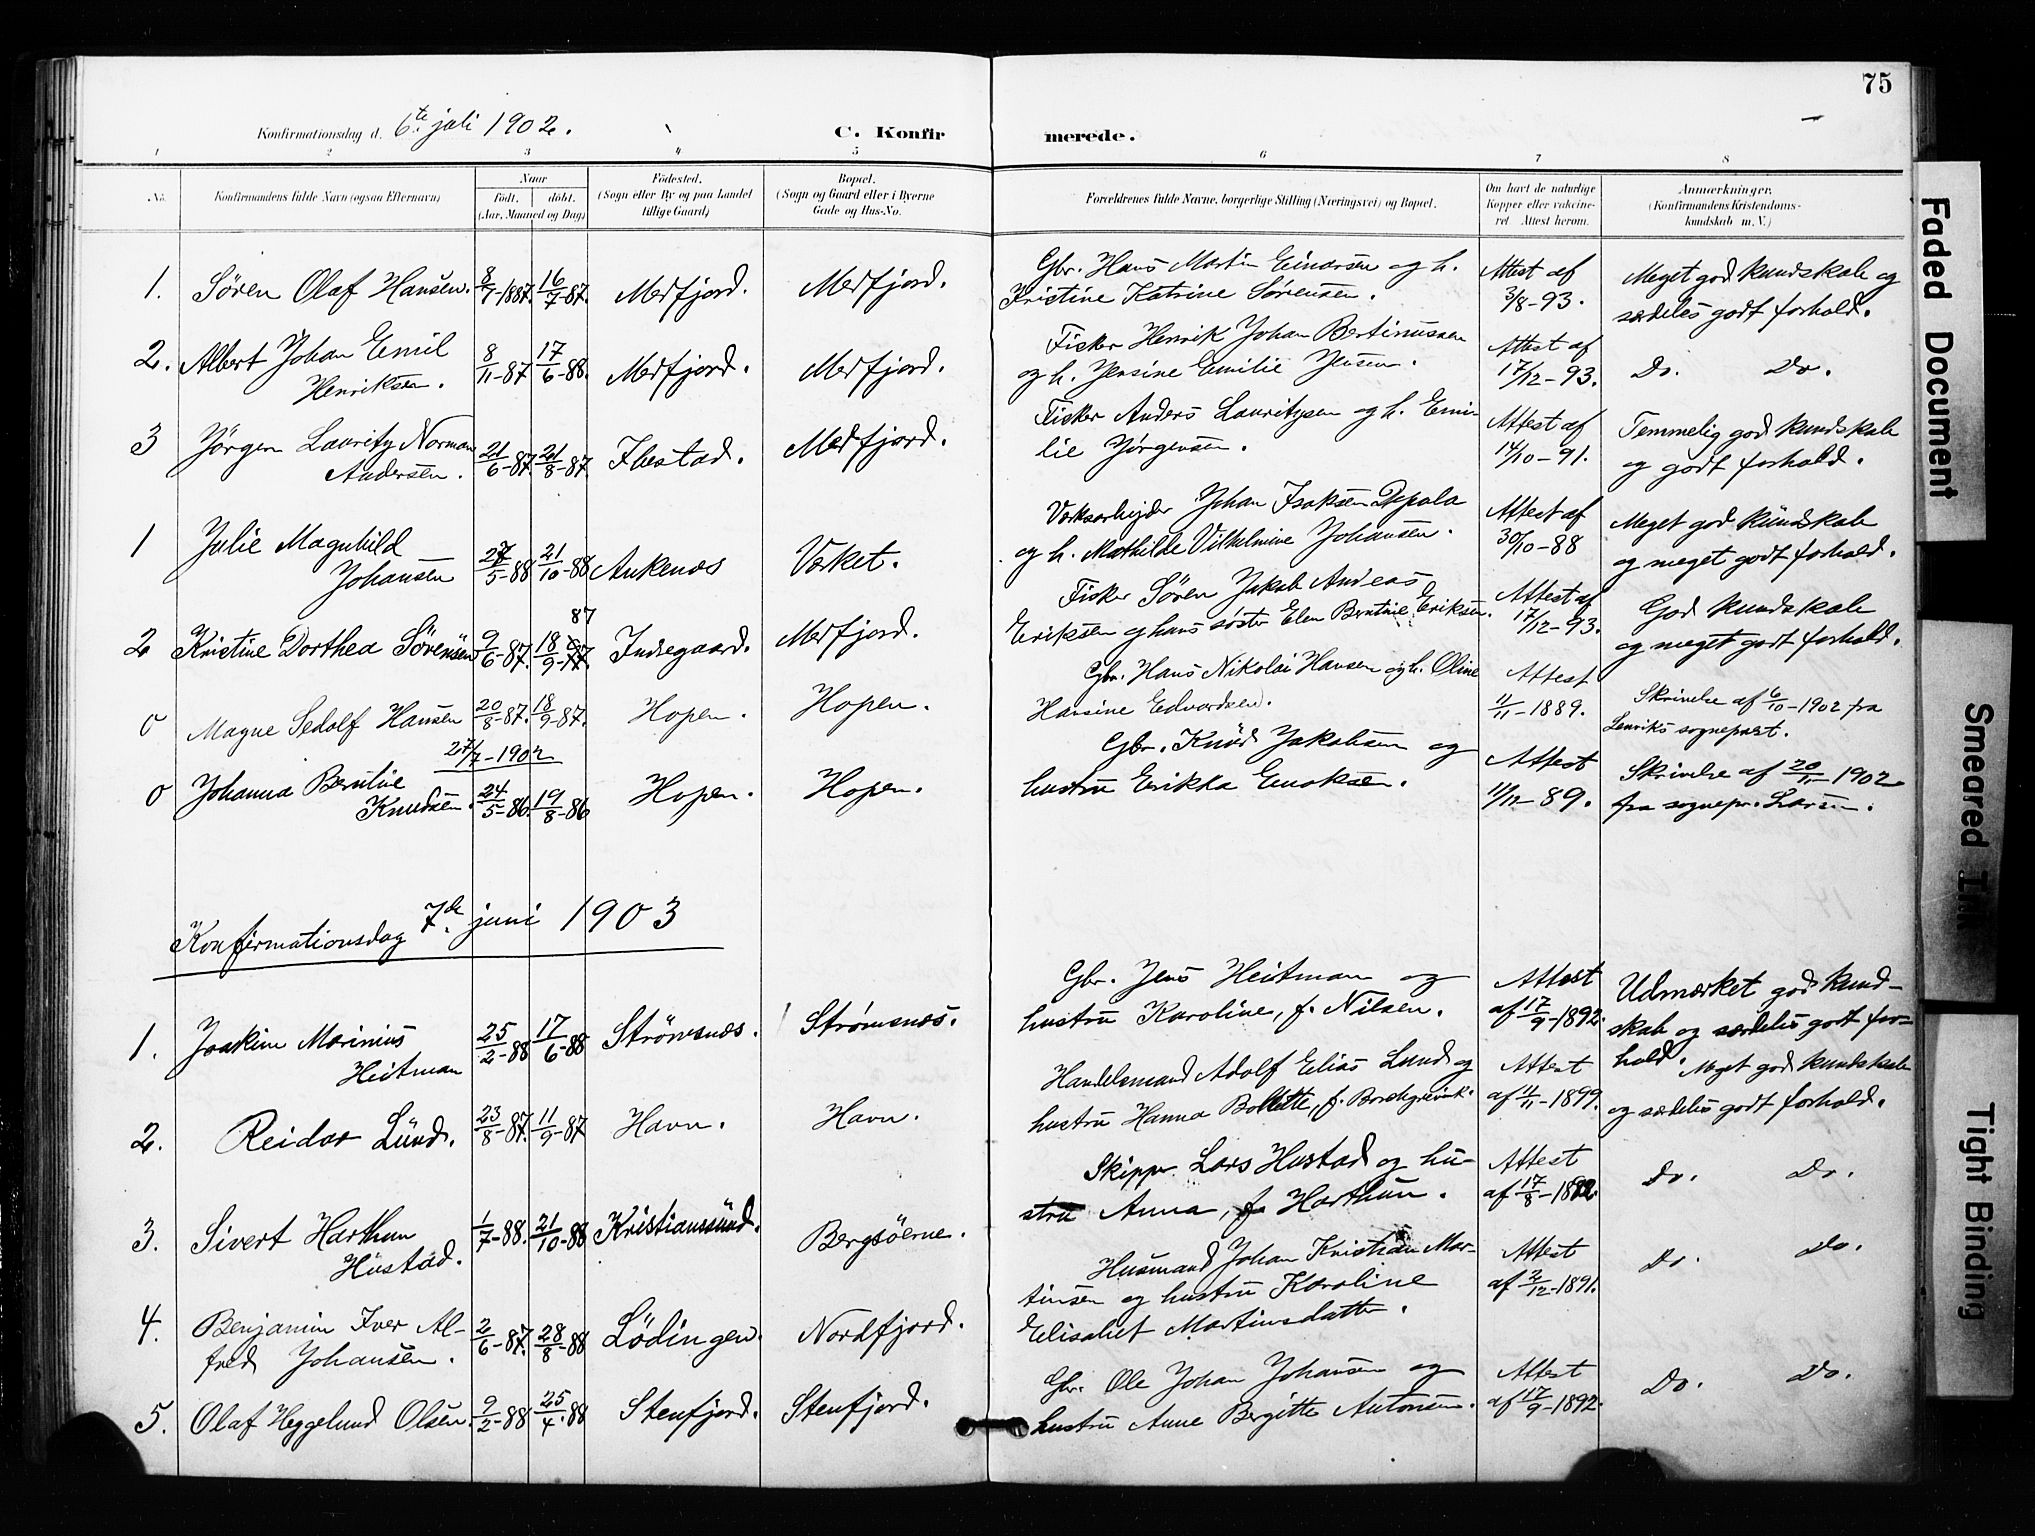 75
Konfirmationsdag d. 6te juli 1902.
C. Konfirmerede.
1 2 3 4 5 6 7 8
No.
Konfirmandens fulde Navn (ogsaa Efternavn)
Naar
født. døbt.
(Aar, Maaned og Dag)
Fødested.
(Sogn eller By og paa Landet
tillige Gaard)
Bopæl.
(Sogn og Gaard eller i Byerne
Gade og Hus-No.
Forældrenes fulde Navne, borgerlige Stilling (Næringsvei) og Bopæl.
Om havt de naturlige
Kopper eller vakcine-
ret Attest herom.
Anmærkninger.
(Konfirmandens Kristendoms-
kundskab m. V.)
1. Søren Olaf Hansen. 8/7-1887. 16/7-87. Medfjord. Medfjord. Gbr. Hans Martin Einarsen og h.
Kristine Katrine Sørensen. Attest af
3/8-93. Meget god kundskab og
særdeles godt forhold.
2. Albert Johan Emil
Henriksen. 8/11-87 17/6-88. Medfjord. Medfjord. Fisker Henrik Johan Bertinussen
og h. Jensine Emilie Jensen. Attest af
17/12-93. Do. Do.
3 Jørgen Lauritz Norman
Andersen. 21/6-87. 21/8-87. Ibestad. Medfjord. Fisker Anders Lauritzsen og h. Emi-
lie Jørgensen. Attest af
14/10-91. Temmelig god kundskab
og godt forhold.
1 Julie Magnhild
Johansen 27/5-88 21/10-88 Ankenæs Verket. Verksarbejder Johan Isaksen
og h. Mathilde Vilhelmine Johansen. Attest af
30/10-88 Meget god kundskab
og meget godt forhold.
2 Kristine Dorthea Sørensen 9/6-87. 18/9- 87 Indregaard. Medfjord. Fisker Søren Jakob Andreas
Eriksen og hans søster Elen Berntine Eriksen. Attest af
17/12-93. God kundskab
og meget godt forhold.
0 Magne Sedolf Hansen 20/8-87. 18/9-87. Hopen. Hopen. Gbr. Hans Nikolai Hansen og h. Oline
Hansine Edvardsen. Attest
11/11-1889. Skrivelse af 6/10-1902 fra
Lenviks sognepræst.
27/7-1902
0 Johanna Berntine
Knudsen. 24/5-86. 19/8-86 Hopen. Hopen. Gbr. Knud Jakobsen og
hustru Erikka Enoksen. Attest
11/12-89. Skrivelse af 20/11 1902
fra sognepr. Larsen.
Konfirmationsdag 7de juni 1903
1. Joakim Marinius
Heitman 25/2-88 17/6-88 Strømsnæs. Strømsnæs. Gbr. Jens Heitman og
hustru Karoline, f. Nilsen. Attest
af 17/9-1892. Udmærket god kund-
skab og særdeles godt for-
hold.
2. Reidar Lund. 23/8-87. 11/9-87 Havn. Havn. Handelsmand Adolf Elias Lund og
hustru Hanna Bollette, f. Borchgrevink. Attest
af 11/11-1899. Meget god kundskab
og særdeles godt forhold.
3. Sivert Harthun
Hustad. 1/7-88. 21/10-88 Kristianssund. Bergsøerne. Skipper Lars Hustad og hu-
stru Anna, f. Harthun. Attest
af 17/8-1892. Do. Do.
4. Benjamin Iver Al-
fred Johansen. 2/6-87. 28/8-88 Lødingen. Nordfjord. Husmand Johan Kristian Mar-
tinsen og hustru Karoline
Elisabet Martinsdatter. Attest
af 2/12-1891. Do. Do.
5. Olaf Heggelund Olsen. 9/2-88 25/4-88 Stenfjord. Stenfjord. Gbr. Ole Johan Johansen og
hustru Anne Bergitte Antonsen. Attest
af 17/9-1892. Do. Do.
Faded Document
Smeared Ink
Tight Binding